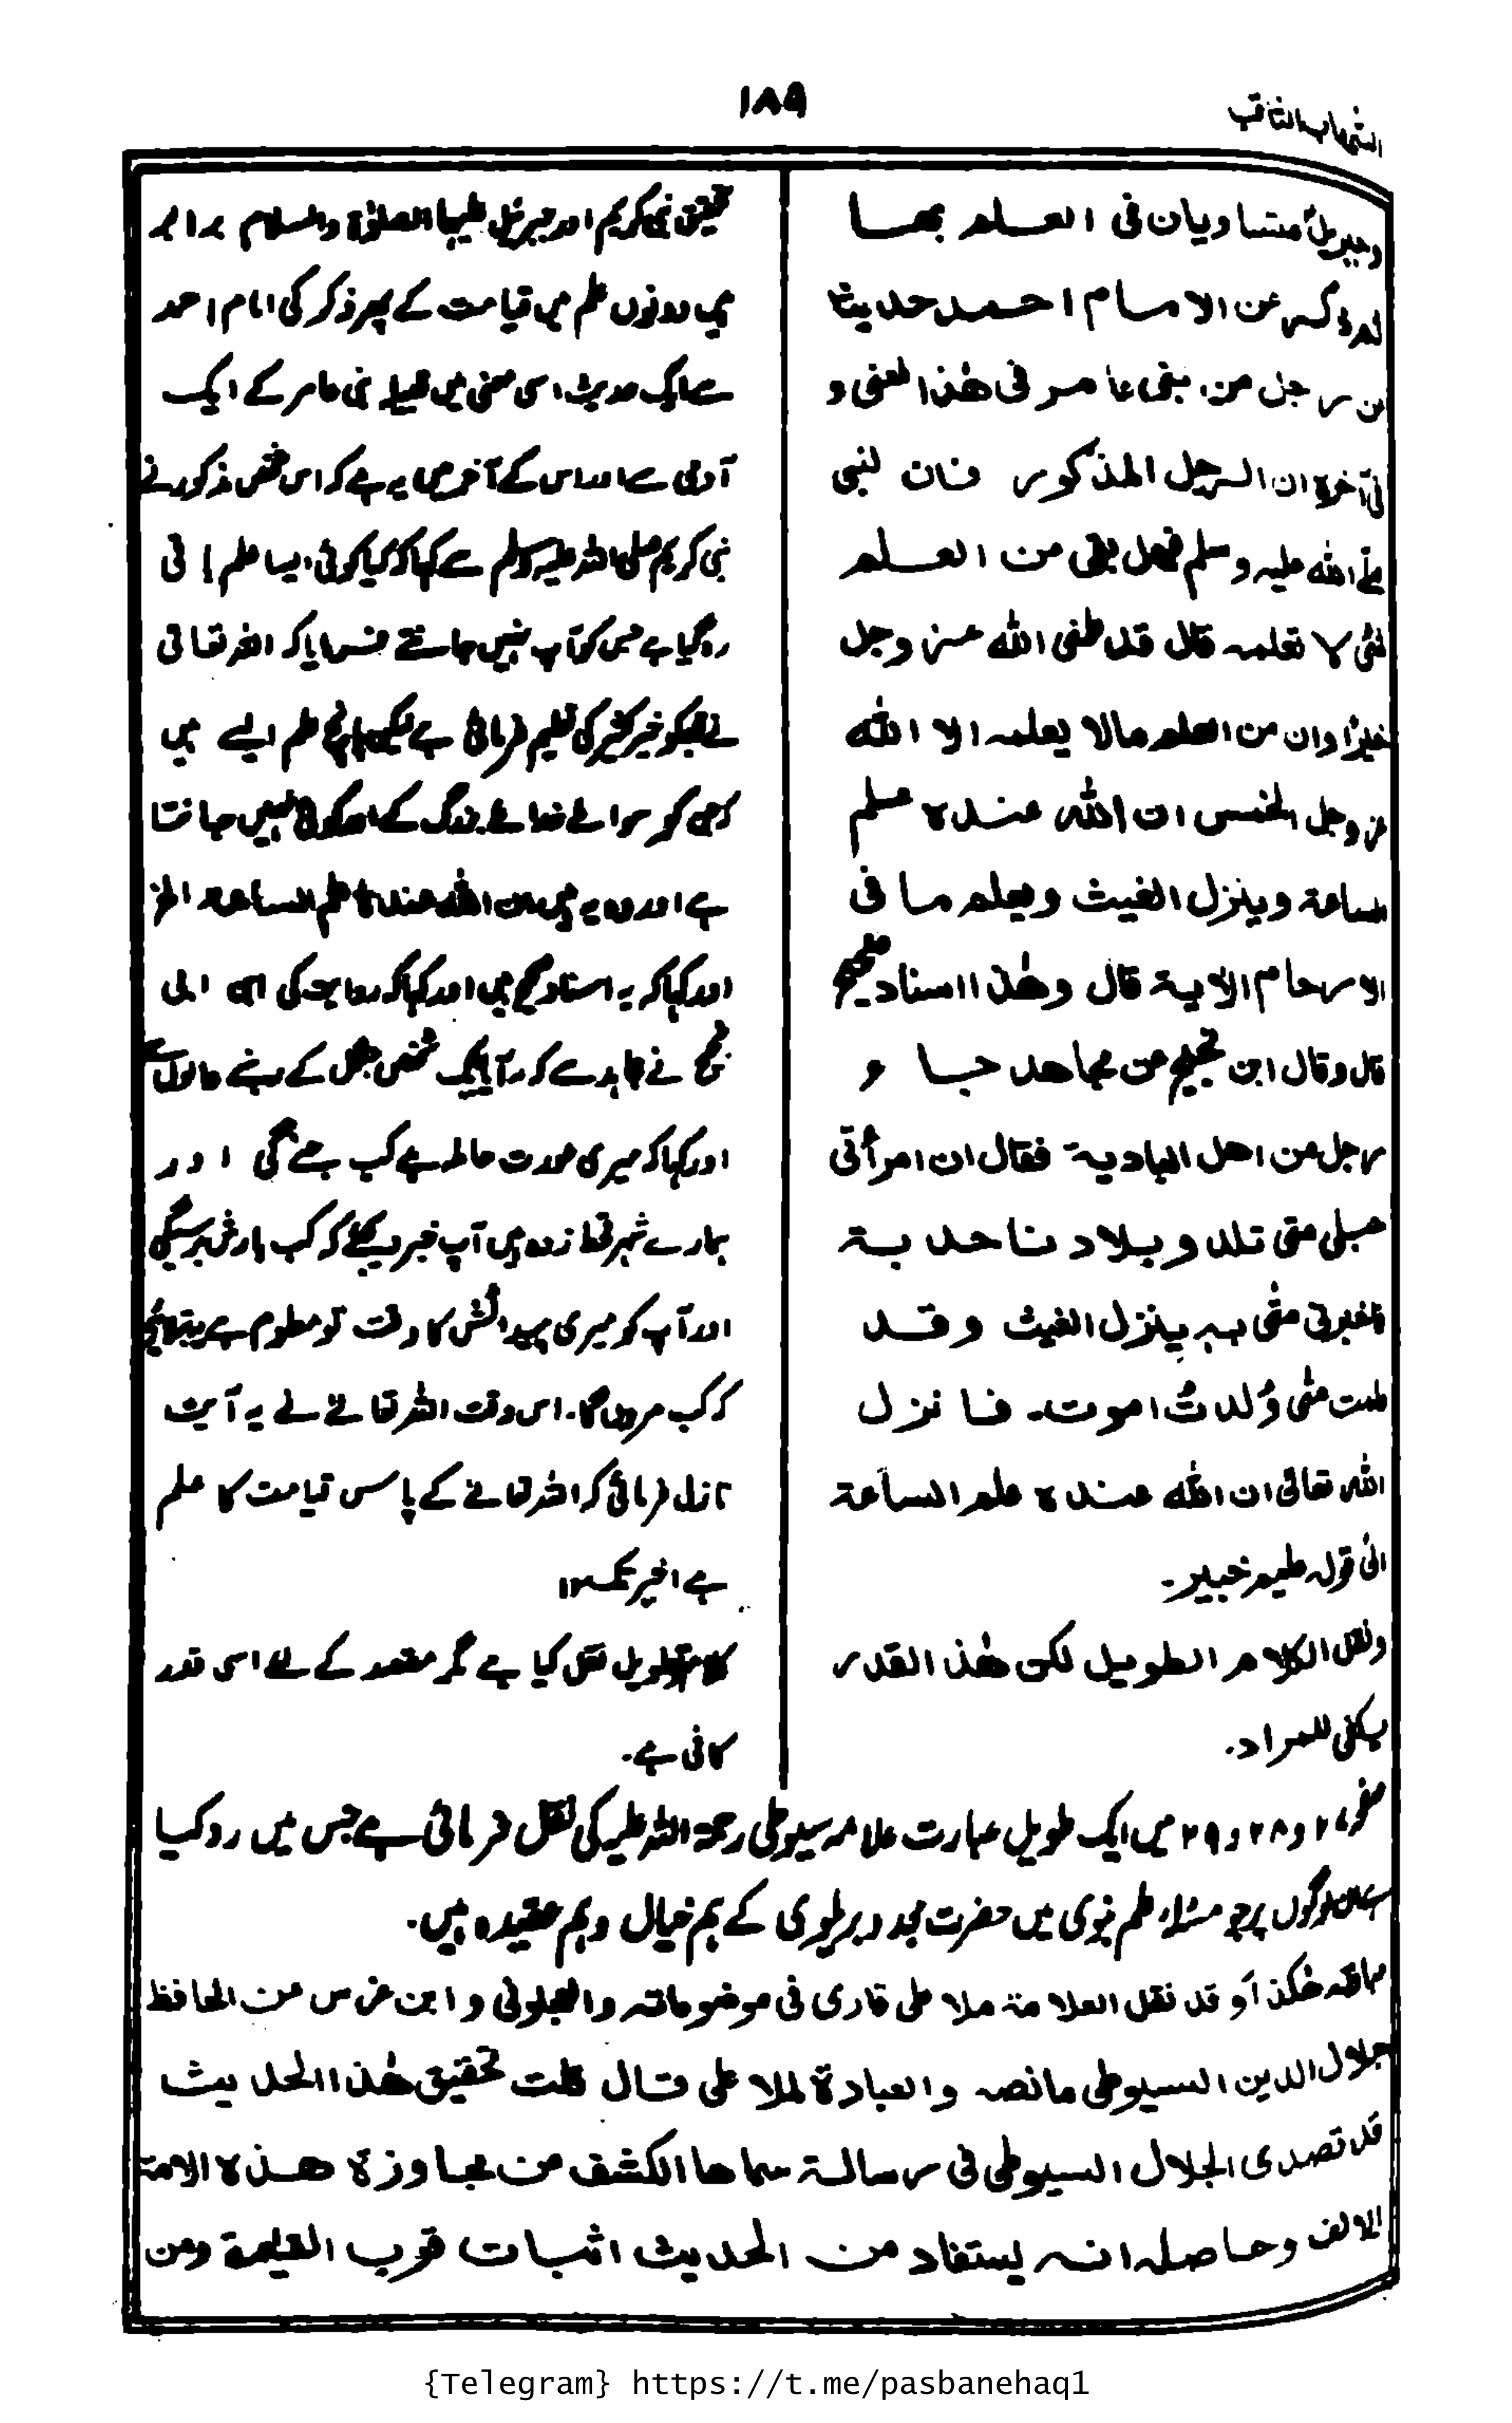 ۱۸۹
الشہاب الثاقب
وجبریل متساویان فی العلم بھا
ثم ذکر عن الامام احمد حدیثا
عن رجل من بنی عامر فی ھذا المعنی و
فی آخرہ ان الرجل المذکور قال لنبی
صلی اللہ علیہ وسلم فھل بقی من العلم
شئ لا تعلمہ قال قد علمنی اللہ عز وجل
خیرا وان من العلم مالا یعلمہ الا اللہ
عز وجل الخمس ان اللہ عندہ علم
الساعۃ وینزل الغیث ویعلم ما فی
الارحام الایۃ قال وھذا اسناد صحیح
قال وقال ابن نجیح عن مجاھد جاء
رجل من اھل البادیۃ فقال ان امرأتی
حبلی متی تلد وبلادنا جدبۃ
فاخبرنی متی ینزل الغیث وقد
علمت متی وُلدتُ اموت۔ فانزل
اللہ تعالی ان اللہ عندہ علم الساعۃ
الی قولہ علیم خبیر۔
ونقل الکلام الطویل لکن ھذا القدر
یکفی للمراد۔
تحقیق نبی کریم اور جبریل علیہما الصلوٰۃ والسلام برابر
ہیں دونوں علم میں قیامت کے پھر ذکر کی امام احمد
سے ایک حدیث اسی معنی میں قبیلہ بنی عامر کے ایک
آدمی سے اور اس کے آخر میں یہ ہے کہ اس شخص مذکور نے
نبی کریم صلی اللہ علیہ وسلم سے کہا کہ کیا کوئی ایسا علم باقی
رہ گیا ہے جس کو آپ نہیں جانتے فرمایا کہ اللہ تعالی
نے مجھکو خیر کثیر کی تعلیم فرمائی ہے لیکن پانچ علم ایسے ہیں
کہ جن کو سوائے خدائے بزرگ کے اور کوئی نہیں جانتا
ہے اور وہ یہ ہیں ان اللہ عندہ علم الساعۃ الخ
اور کہا کہ یہ اسناد صحیح ہیں اور کہا کہ روایت کی ابن ابی
نجیح نے مجاہد سے کہ آیا ایک شخص جنگل کے رہنے والوں سے
اور کہا کہ میری عورت حاملہ ہے کب جنے گی اور
ہمارے شہر قحط زدہ ہیں آپ خبر دیجئے کہ کب بارش برسیگی
اور آپ کو میری پیدائش کا وقت تو معلوم ہے بتلائیے
کہ کب مروں گا۔ اس وقت اللہ تعالے نے یہ آیت
نازل فرمائی کہ اللہ تعالے کے پاس قیامت کا علم
ہے اخیر تک۔
کلام طویل نقل کیا ہے مگر مقصد کے لئے اسی قدر
کافی ہے۔
صفحہ ۲۷ و ۲۸ و ۲۹ میں ایک طویل عبارت علامہ سیوطی رحمۃ اللہ علیہ کی نقل فرمائی ہے جس میں رد کیا
ہے ان لوگوں پر جو مسئلہ علم نبوی میں حضرت مجدد بریلوی کے ہم خیال و ہم عقیدہ ہیں۔
ھکذا وقد نقل العلامۃ ملا علی قاری فی موضوعاتہ والعجلونی وابن غرس عن الحافظ
جلال الدین السیوطی مانصہ والعبادۃ لملا علی قال قلت تحقیق ھذا الحدیث
قد تصدی الجلال السیوطی فی رسالۃ سماھا الکشف عن مجاوزۃ ھذہ الامۃ
الالف وحاصلہ انہ یستفاد من الحدیث اثبات قرب القیمۃ ومن
{Telegram} https://t.me/pasbanehaq1